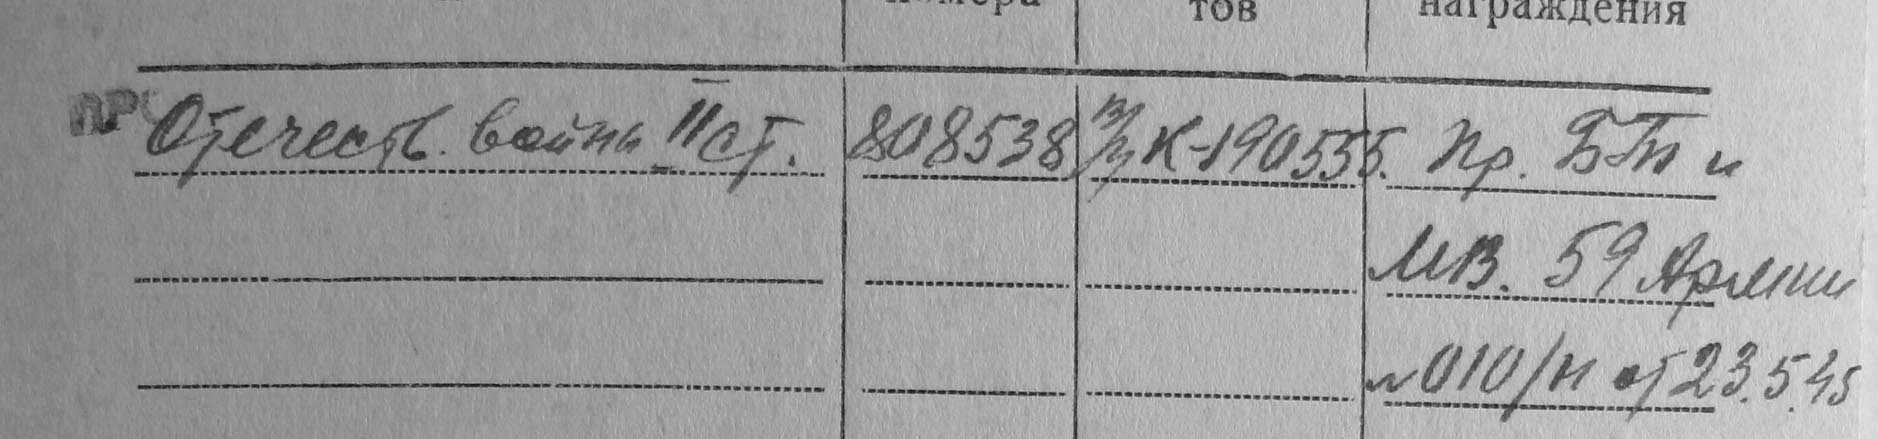 номера тов награждения
ПРО Отечеств. войны II ст. 808538 в/д К-190555. Пр. БТ и
МВ. 59 Армии
№010/н от 23.5.45